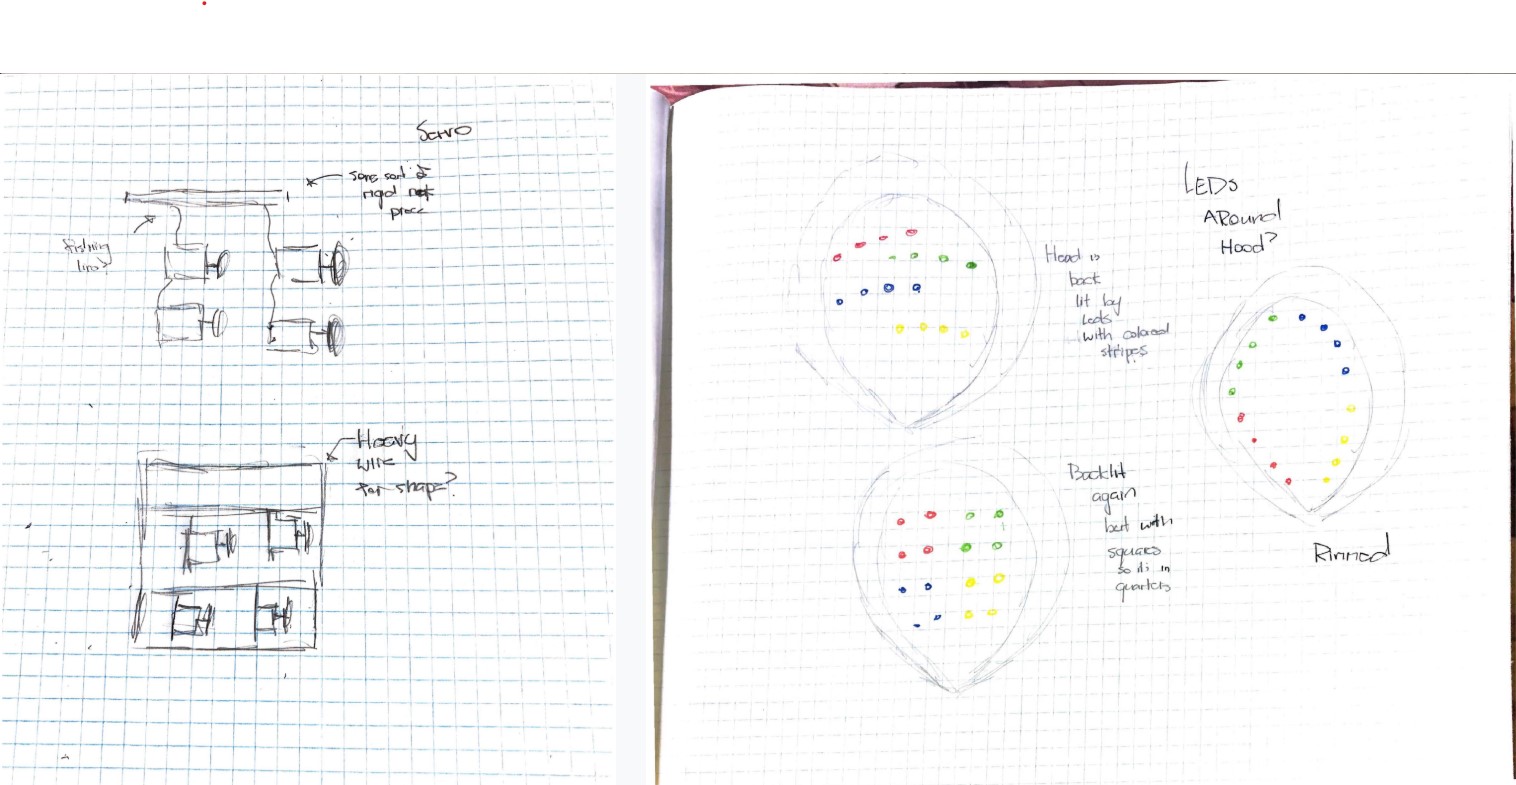 Servo
some sort of
rigid
piece
fishing
line?
Heavy
wire
for shape?
LEDs
Around
Hood?
Head is
back
lit by
Leds
with colored
stripes
Backlit
again
but with
squares
so its in
quarters
Rimmed